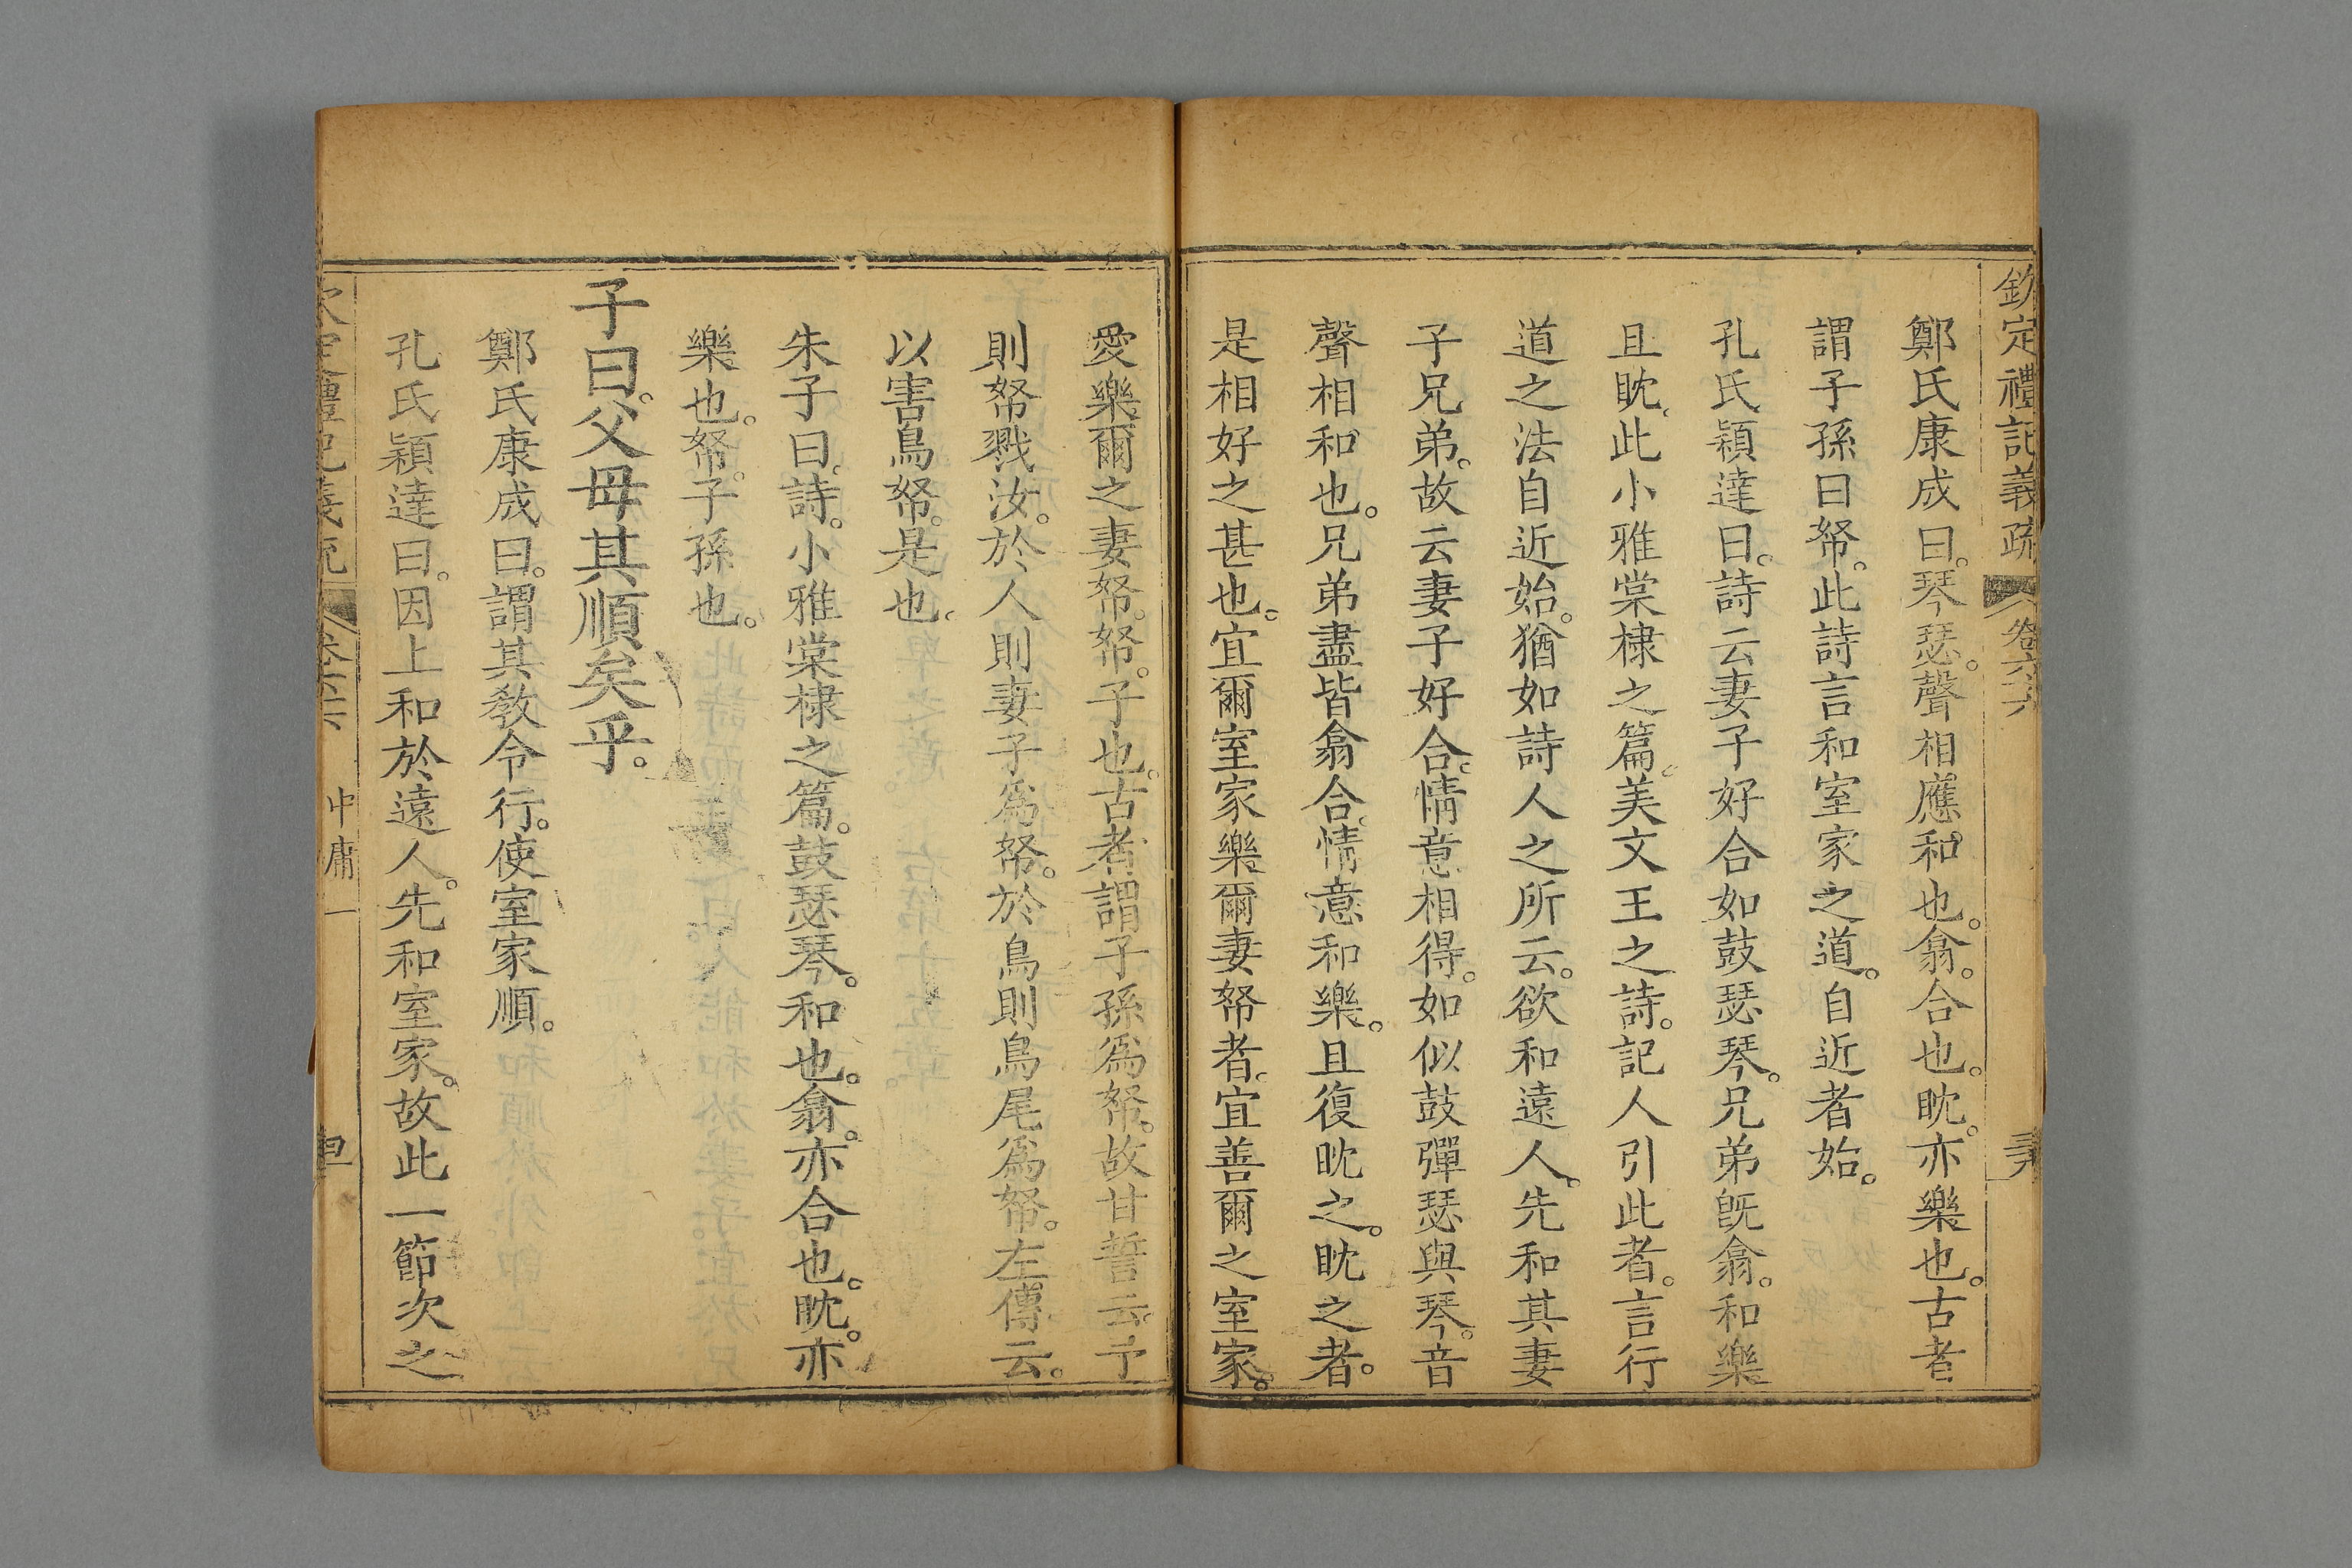 欽定禮記義疏 卷六六
鄭氏康成曰。琴瑟。聲相應和也。翕。合也。眈。亦樂也。古者
謂子孫曰帑。此詩言和室家之道。自近者始。
孔氏穎達曰。詩云妻子好合如鼓瑟琴。兄弟旣翕。和樂
且眈。此小雅棠棣之篇。美文王之詩。記人引此者。言行
道之法自近始。猶如詩人之所云。欲和遠人。先和其妻
子兄弟。故云妻子好合。情意相得。如似鼓彈瑟與琴。音
聲相和也。兄弟盡皆翕合。情意和樂。且復眈之。眈之者。
是相好之甚也。宜爾室家樂爾妻帑者。宜善爾之室家。
愛樂爾之妻帑。帑。子也。古者謂子孫爲帑。故甘誓云。予
則帑戮汝。於人則妻子爲帑。於鳥則鳥尾爲帑。左傳云。
以害鳥帑。是也。
朱子曰。詩。小雅棠棣之篇。鼓瑟琴。和也。翕。亦合也。眈。亦
樂也。帑。子孫也。
子曰。父母其順矣乎。
鄭氏康成曰。謂其敎令行。使室家順。
孔氏穎達曰。因上和於遠人。先和室家。故此一節次之
中庸一